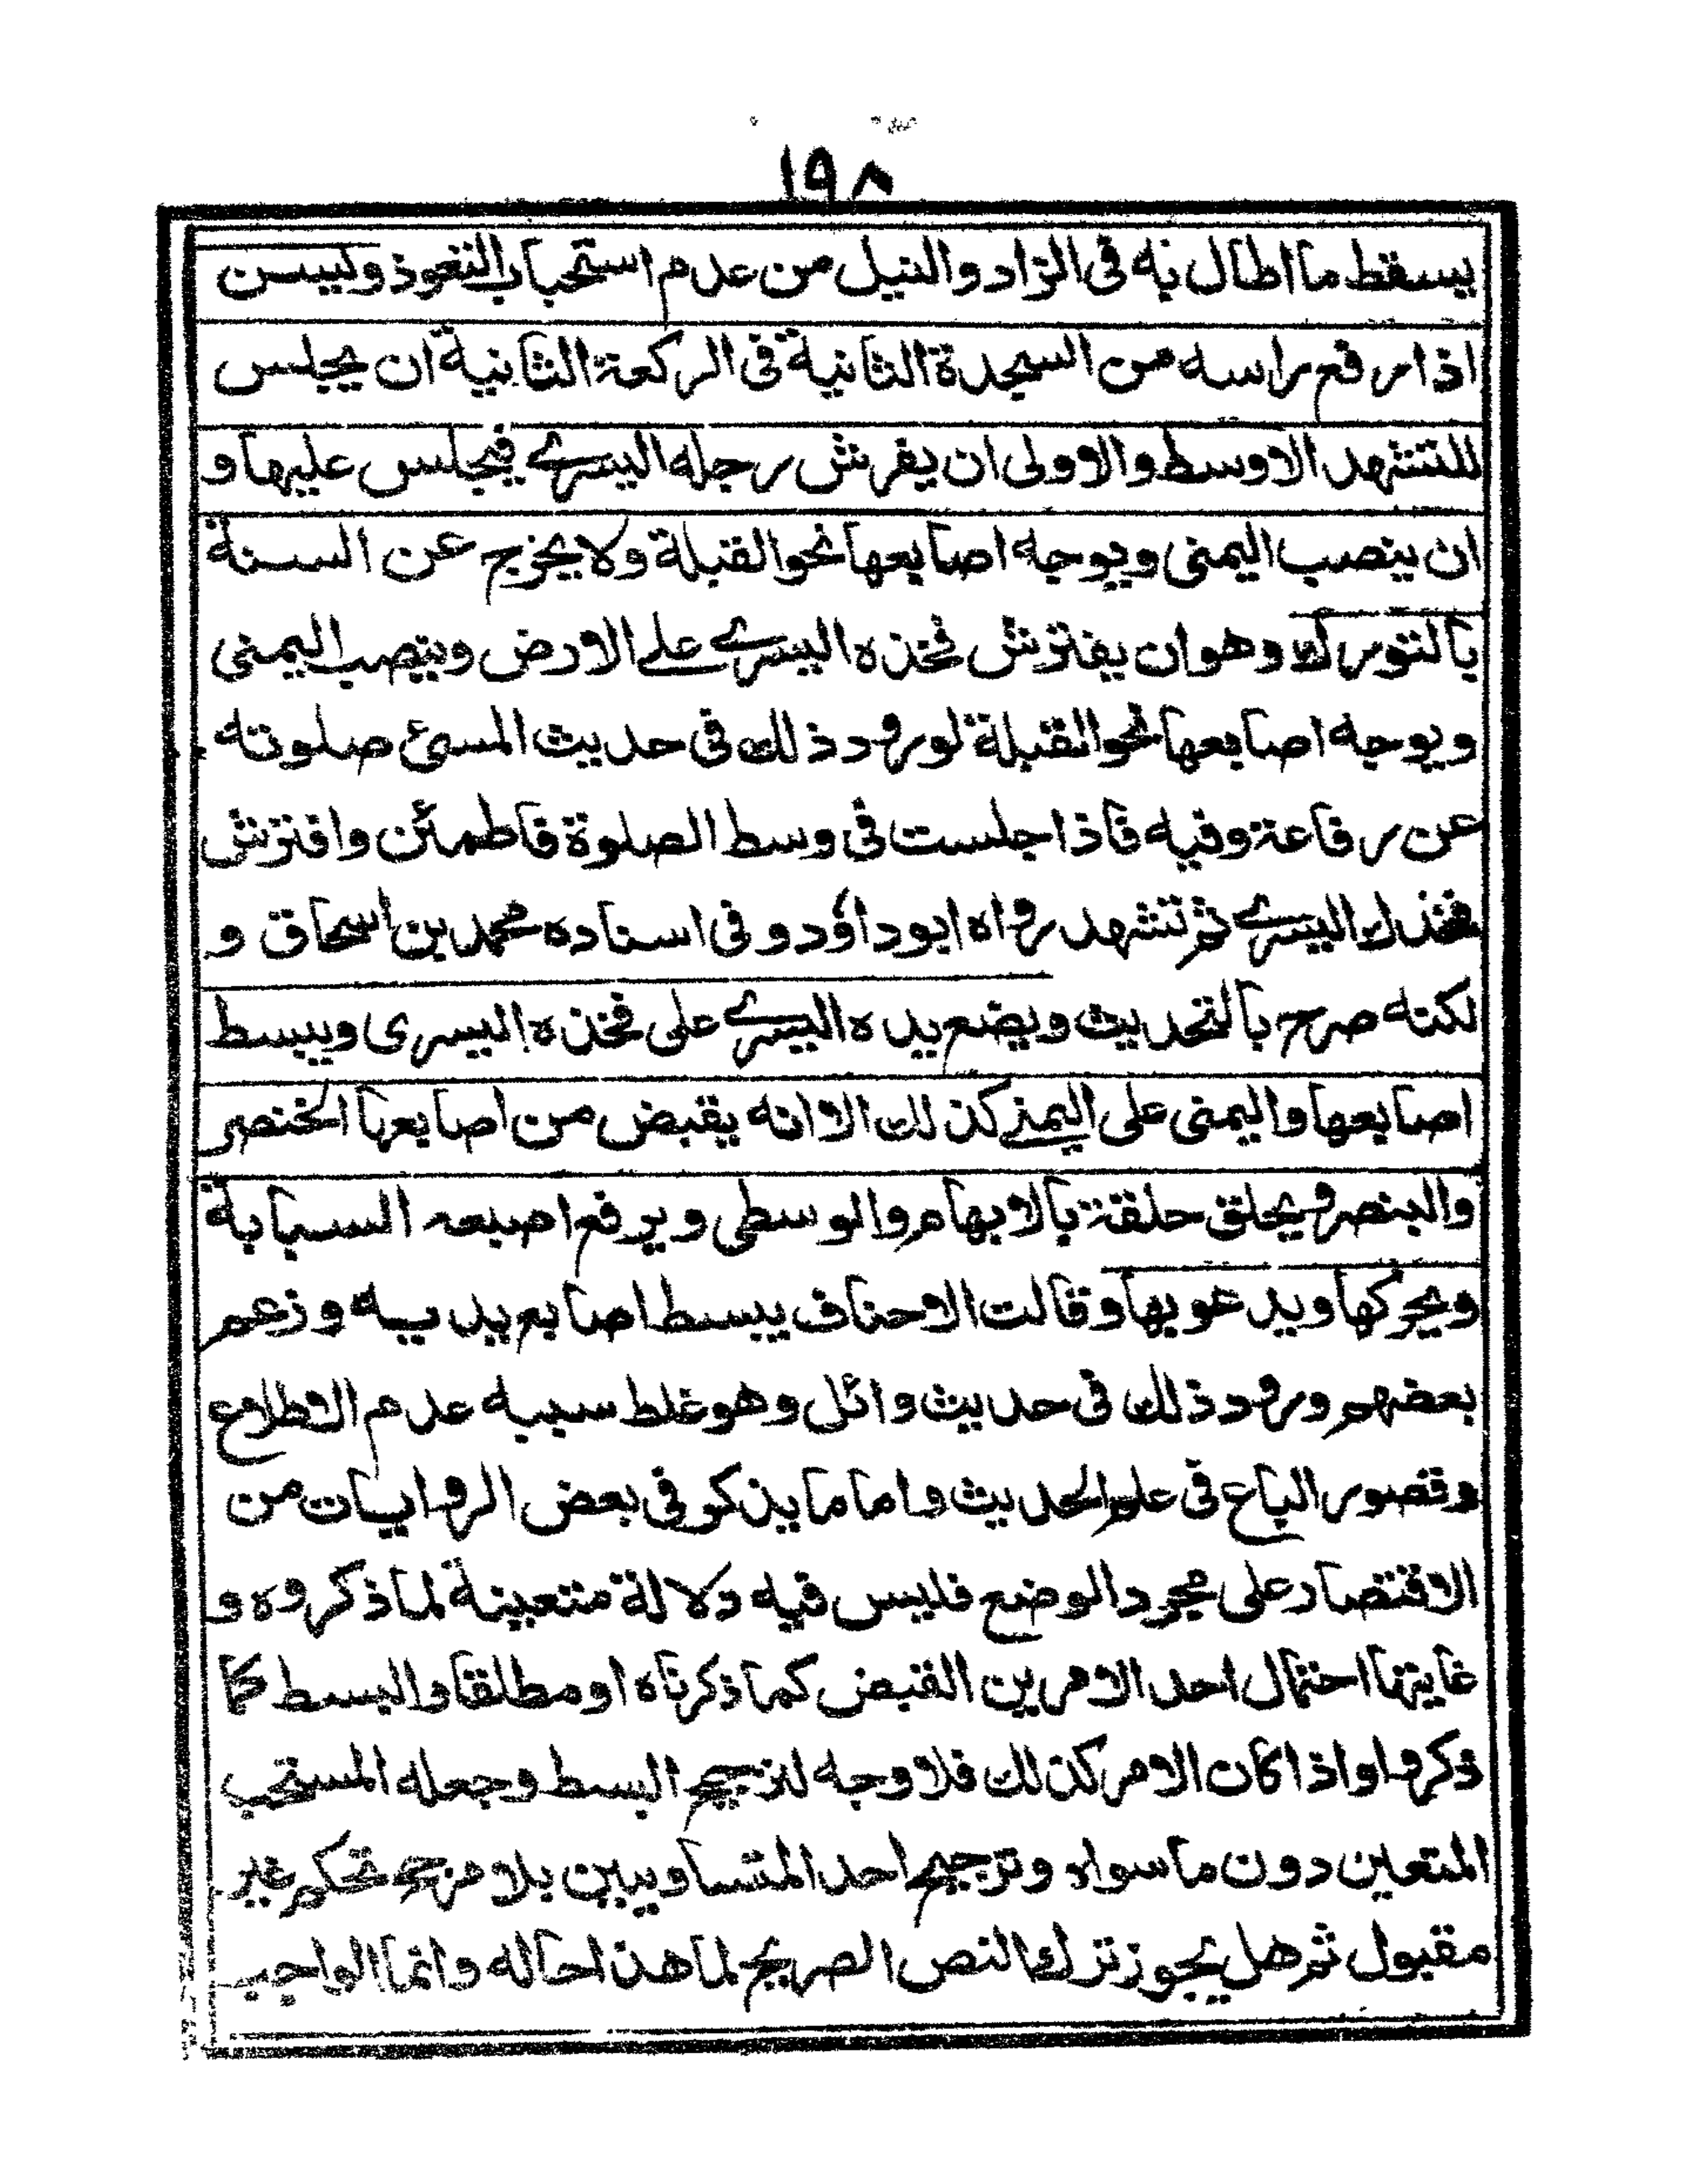 ١٩٨
يسقط ما اطال به فى الزاد والنيل من عدم استحباب التعوذ وليسن
اذا رفع راسه من السجدة الثانية فى الركعة الثانية ان يجلس
للتشهد الاوسط والاولى ان يفرش رجله اليسرے فيجلس عليها و
ان ينصب اليمنى ويوجه اصابعها نحو القبلة ولا يخرج عن السنة
بالتورك وهو ان يفترش فخذه اليسرے على الارض وينصب اليمنى
ويوجه اصابعها نحو القبلة لورود ذلك فى حديث المسئ صلوته
عن رفاعة وفيه فاذا جلست فى وسط الصلوة فاطمئن وافترش
فخذك اليسرے ثم تشهد رواه ابو داؤد و فى اسناده محمد بن اسحاق و
لكنه صرح بالتحديث ويضع يده اليسرے على فخذه اليسرى ويبسط
اصابعها واليمنى على اليمنے كذلك الا انه يقبض من اصابعها الخنصر
والبنصر ويحلق حلقة بالابهام والوسطى ويرفع اصبعه السبابة
ويحركها ويدعو بها وقالت الاحناف يبسط اصابع يديه وزعم
بعضهم ورود ذلك فى حديث وائل وهو غلط سببه عدم الاطلاع
وقصور الباع فى علم الحديث واما ما يذكر فى بعض الروايات من
الاقتصار على مجرد الوضع فليس فيه دلالة متعينة لما ذكروه و
غايتها احتمال احد الامرين القبض كما ذكرناه او مطلقا والبسط كما
ذكروا واذا كان الامر كذلك فلا وجه لترجيح البسط وجعله المستحب
المتعين دون ما سواه وترجيح احد المتساويين بلا مرجح تحكم غير
مقبول ثم هل يجوز ترك النص الصريح لما هذا حاله وانما الواجب